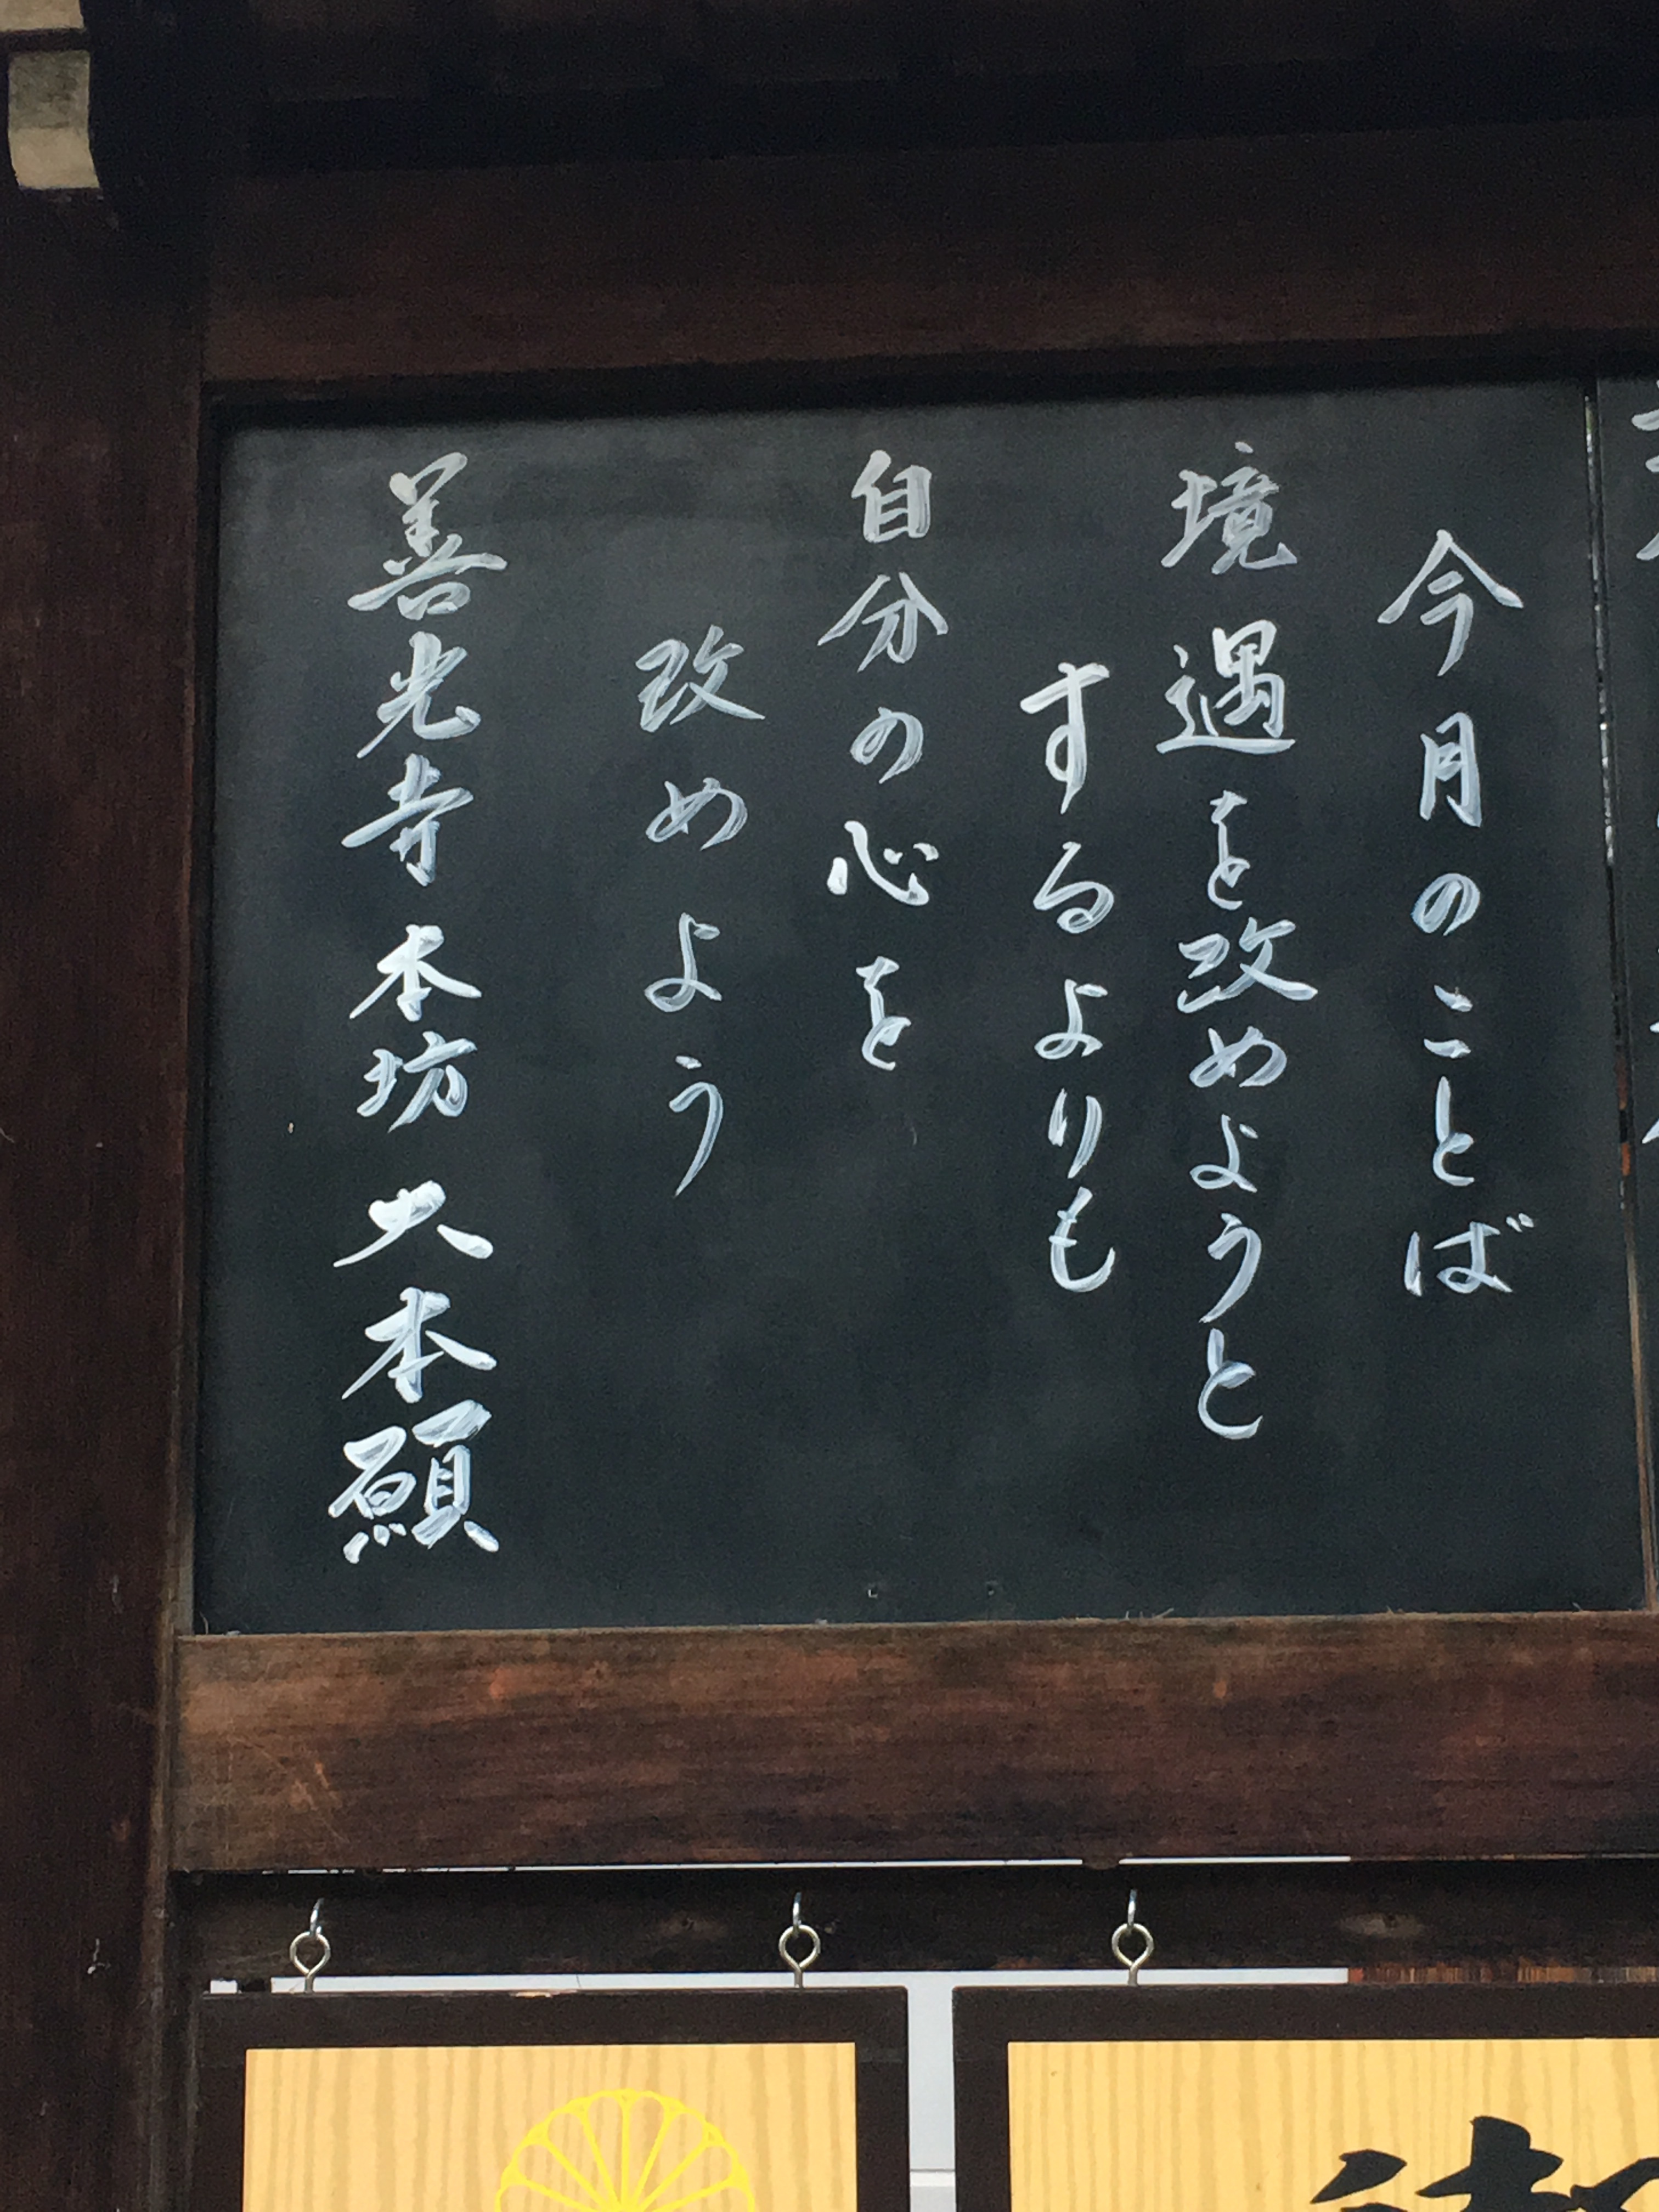 今月のことば
境遇を改めようと
するよりも
自分の心を
改めよう
善光寺本坊 大本願